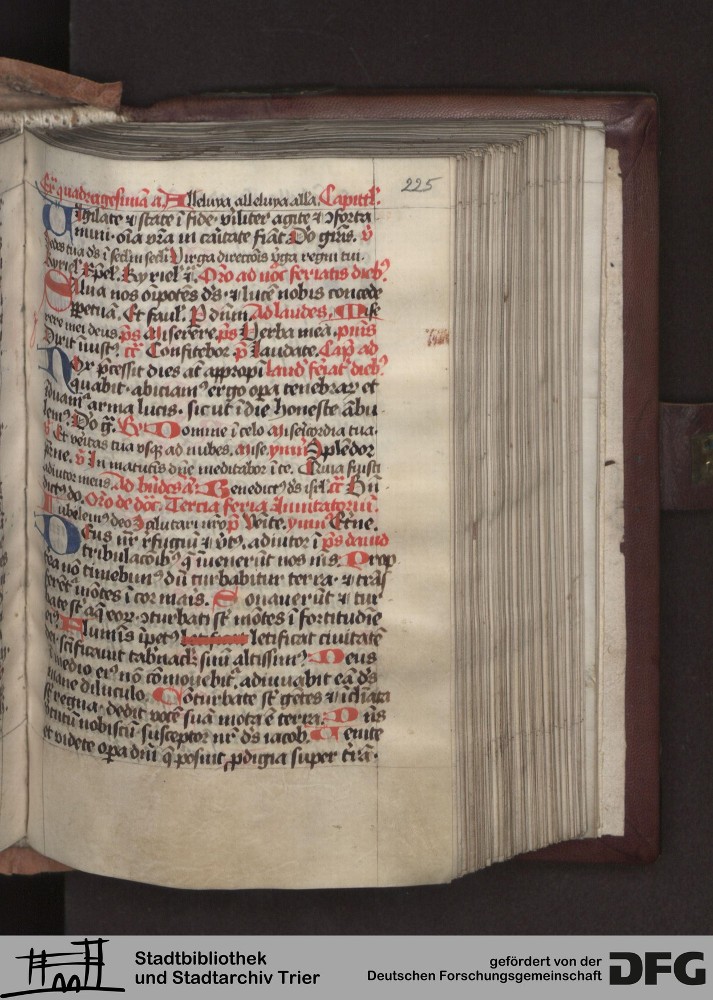 225
Ex̄ quadragesimā a. Alleluya alleluya alla. Capitl̄.
Vigilate ⁊ state ī fide· viliter agite ⁊ ꝯforta
mini· oīa vr̄a in caritate fiāt. Do gr̄as. v̄
Sedes tua ds̄ ī sclm̄ scli Virga directōis v̄ga regni tui.
Kyriel̄ Xp̄el̄. Kyriel̄ Oro ad uōc feriatis dieb⁹.
Salua nos oīpotēs ds̄· ⁊ lucē nobis concede
ꝑpetuā. Et faul̄. P dn̄m. Ad laudes. Mise
rere mei deus. ps Miserere. ps Verba mea. pmīs
Dixit iniust⁹ cc̄ Confitebor. p̄ laudate. Cap̄ ad
Nox p̄cessit dies aūt appropī laud̄ feriat⁹ dieb⁹.
quabit· abiciam⁹ ergo opa tenebrar et
īduam⁹ arma lucis· sic ut ī die honeste ābu
lem⁹. Do g̃. Br̄ Domine ī celo Misericordia tua.
v̄ Et veritas tua vsq ad nubes. mise. ymn⁹ Splēdor
pr̄ne. v̄ In matutīs dn̄e meditabor ī te. Quia fuisti
adiutor meus. Ad bn̄des a⁹. Benedict⁹ ds̄ isrl̄. cc̄ Bn̄
dict⁹ do. Oro de dōc. Tercia feria Inuitatoriū.
Iubelem⁹ deo Salutari nr̄o. p̄ Venite. ymn⁹ Etn̄e.
Deus nr̄ rēfugiū ⁊ v̄t⁹. adiutor ī ps dauid
tribulacōib⁹ q̄ īuenerūt nos nīs. Prop
tea nō timebim⁹ dū turbabitur terra· ⁊ trāsf
ferēt⁹ mōtes ī cor maīs. Sonauerūt ⁊ tur
bate st̄ aq̄ eor̄· ꝯturbati st̄ mōtes ī fortitudīe
ei⁹. Flumīs īpet⁹ letificat letificat ciuitatē
dei· scīficauit tab̄nacl̄ suū altissim⁹. Deus
ī medio ei⁹ nō cōmouebit̄. adiuuabit eā ds̄
mane diluculo. Cōturbate st̄ gētes ⁊ īcliāta
st̄ regna· dedit vocē suā mota ē terra. Dn̄s
v̄tutū nobiscū· susceptor nr̄ ds̄ iacob. Venite
et videte opa dn̄i q̄ posuit ꝓdigia super trā.
Stadtbibliothek
und Stadtarchiv Trier
gefördert von der
Deutschen Forschungsgemeinschaft DFG